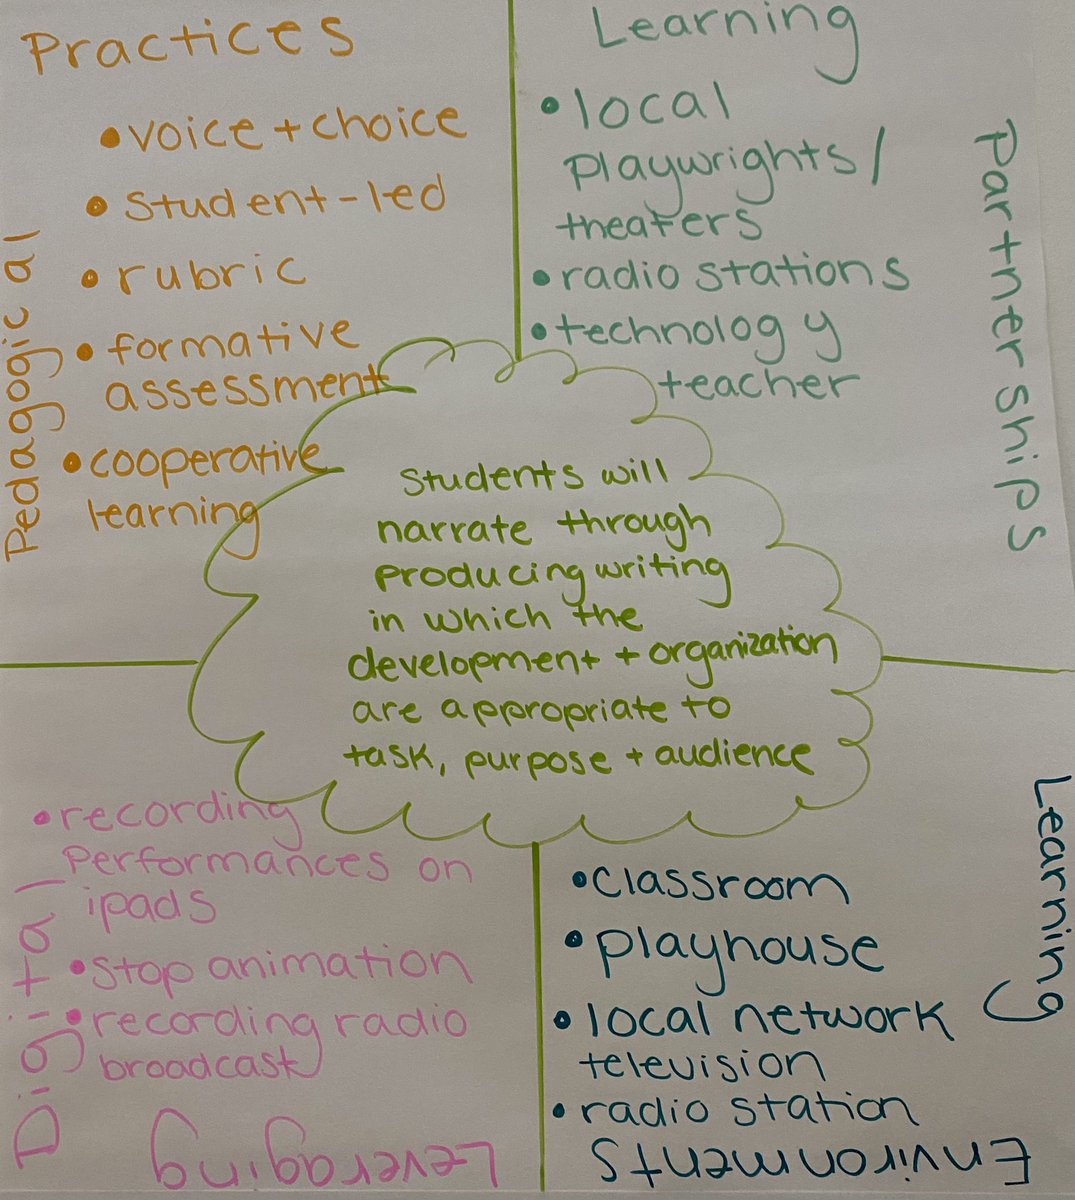 Pedagogical
Practices
• voice + choice
• student-led
• rubric
• formative
assessment
• cooperative
learning
Learning
Partnerships
• local
playwrights/
theaters
• radio stations
• technology
teacher
students will
narrate through
producing writing
in which the
development + organization
are appropriate to
task, purpose + audience
Leveraging
Digital
• recording
performances on
ipads
• stop animation
• recording radio
broadcast
Learning
Environments
• classroom
• playhouse
• local network
television
• radio station